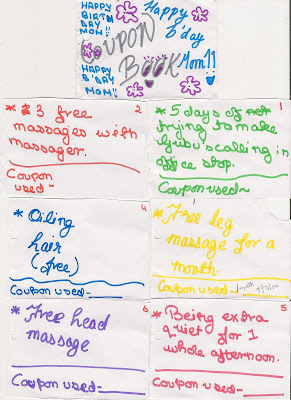 HAPPY
BIRTH
DAY
MOM!!
Happy
b'day
Mom!!
COUPON
BOOK
HAPPY
B'DAY
MOM!!
2
* 3 free
massages with
massager.
Coupon
used-
1
* 5 days of not
trying to make
calling in
office stop.
Coupon used-
4
* Oiling
hair
(free)
Coupon used-
* Free leg
massage for a
month.
Coupon used-
6
* Free head
massage
Coupon used-
5
* Being extra
quiet for 1
whole afternoon.
Coupon used-